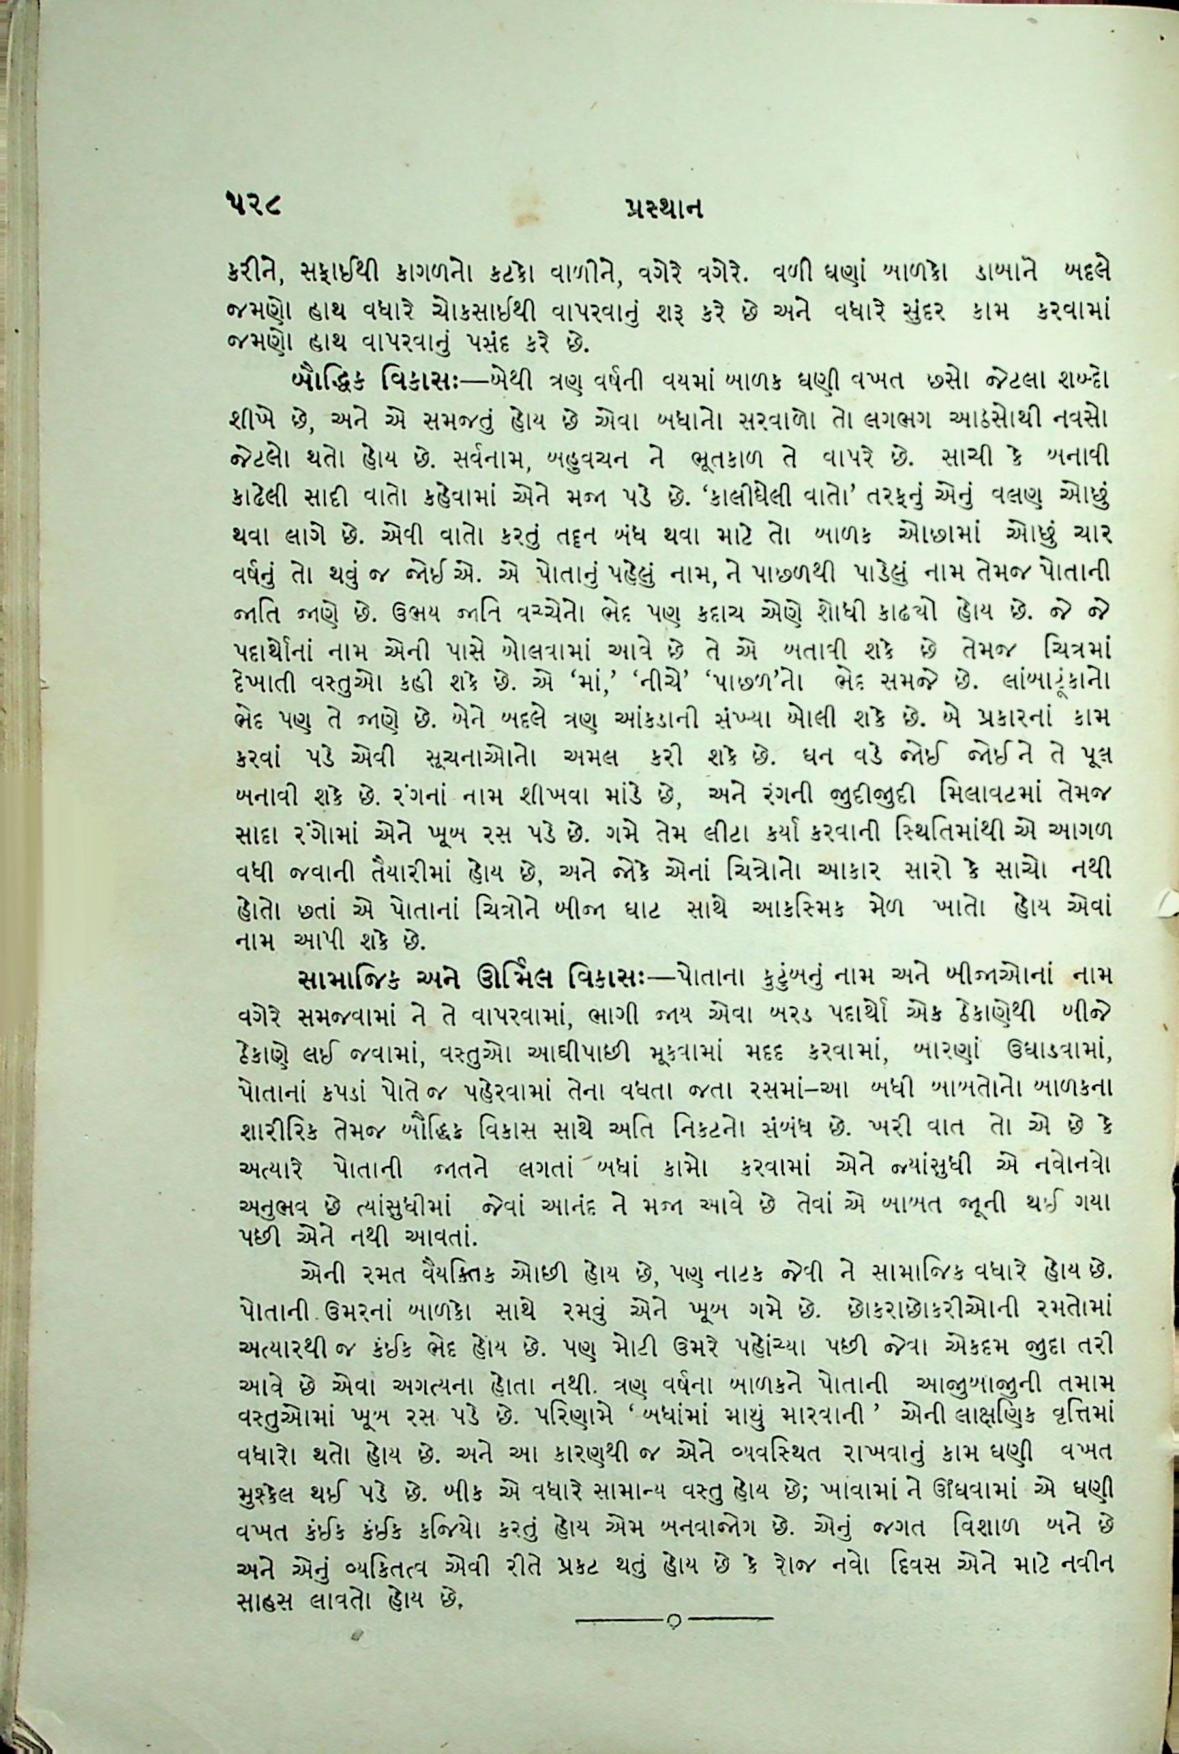 ૫૨૮
પ્રસ્થાન
કરીને, સફાઈથી કાગળનો કટકો વાળીને, વગેરે વગેરે. વળી ઘણાં બાળકો ડાબાને બદલે
જમણો હાથ વધારે ચોકસાઈથી વાપરવાનું શરૂ કરે છે અને વધારે સુંદર કામ કરવામાં
જમણો હાથ વાપરવાનું પસંદ કરે છે.
બૌદ્ધિક વિકાસઃ—બેથી ત્રણ વર્ષની વયમાં બાળક ઘણી વખત છસો જેટલા શબ્દો
શીખે છે, અને એ સમજતું હોય છે એવા બધાનો સરવાળો તો લગભગ આઠસોથી નવસો
જેટલો થતો હોય છે. સર્વનામ, બહુવચન ને ભૂતકાળ તે વાપરે છે. સાચી કે બનાવી
કાઢેલી સાદી વાતો કહેવામાં એને મજા પડે છે. ‘કાલીઘેલી વાતો’ તરફનું એનું વલણ ઓછું
થવા લાગે છે. એવી વાતો કરતું તદ્દન બંધ થવા માટે તો બાળક ઓછામાં ઓછું ચાર
વર્ષનું તો થવું જ જોઈએ. એ પોતાનું પહેલું નામ, ને પાછળથી પાડેલું નામ તેમજ પોતાની
જાતિ જાણે છે. ઉભય જાતિ વચ્ચેનો ભેદ પણ કદાચ એણે શોધી કાઢ્યો હોય છે. જે જે
પદાર્થોનાં નામ એની પાસે બોલવામાં આવે છે તે એ બતાવી શકે છે તેમજ ચિત્રમાં
દેખાતી વસ્તુઓ કહી શકે છે. એ ‘માં,’ ‘નીચે’ ‘પાછળ’નો ભેદ સમજે છે. લાંબાટૂંકાનો
ભેદ પણ તે જાણે છે. બેને બદલે ત્રણ આંકડાની સંખ્યા બોલી શકે છે. બે પ્રકારનાં કામ
કરવાં પડે એવી સૂચનાઓનો અમલ કરી શકે છે. ઘન વડે જોઈ જોઈને તે પૂલ
બનાવી શકે છે. રંગનાં નામ શીખવા માંડે છે, અને રંગની જુદીજુદી મિલાવટમાં તેમજ
સાદા રંગોમાં એને ખૂબ રસ પડે છે. ગમે તેમ લીટા કર્યા કરવાની સ્થિતિમાંથી એ આગળ
વધી જવાની તૈયારીમાં હોય છે, અને જોકે એનાં ચિત્રોનો આકાર સારો કે સાચો નથી
હોતો છતાં એ પોતાનાં ચિત્રોને બીજા ઘાટ સાથે આકસ્મિક મેળ ખાતો હોય એવાં
નામ આપી શકે છે.
સામાજિક અને ઊર્મિલ વિકાસઃ—પોતાના કુટુંબનું નામ અને બીજાઓનાં નામ
વગેરે સમજવામાં ને તે વાપરવામાં, ભાગી જાય એવા બરડ પદાર્થો એક ઠેકાણેથી બીજે
ઠેકાણે લઈ જવામાં, વસ્તુઓ આઘીપાછી મૂકવામાં મદદ કરવામાં, બારણાં ઉઘાડવામાં,
પોતાનાં કપડાં પોતે જ પહેરવામાં તેના વધતા જતા રસમાં–આ બધી બાબતોનો બાળકના
શારીરિક તેમજ બૌદ્ધિક વિકાસ સાથે અતિ નિકટનો સંબંધ છે. ખરી વાત તો એ છે કે
અત્યારે પોતાની જાતને લગતાં બધાં કામો કરવામાં એને જ્યાંસુધી એ નવોનવો
અનુભવ છે ત્યાંસુધીમાં જેવાં આનંદ ને મજા આવે છે તેવાં એ બાબત જૂની થઈ ગયા
પછી એને નથી આવતાં.
એની રમત વૈયક્તિક ઓછી હોય છે, પણ નાટક જેવી ને સામાજિક વધારે હોય છે.
પોતાની ઉમરનાં બાળકો સાથે રમવું એને ખૂબ ગમે છે. છોકરાછોકરીઓની રમતોમાં
અત્યારથી જ કંઈક ભેદ હોય છે. પણ મોટી ઉમરે પહોંચ્યા પછી જેવા એકદમ જુદા તરી
આવે છે એવા અગત્યના હોતા નથી. ત્રણ વર્ષના બાળકને પોતાની આજુબાજુની તમામ
વસ્તુઓમાં ખૂબ રસ પડે છે. પરિણામે ‘બધાંમાં માથું મારવાની’ એની લાક્ષણિક વૃત્તિમાં
વધારો થતો હોય છે. અને આ કારણથી જ એને વ્યવસ્થિત રાખવાનું કામ ઘણી વખત
મુશ્કેલ થઈ પડે છે. બીક એ વધારે સામાન્ય વસ્તુ હોય છે; ખાવામાં ને ઊંઘવામાં એ ઘણી
વખત કંઈક કંઈક કજિયો કરતું હોય એમ બનવાજોગ છે. એનું જગત વિશાળ બને છે
અને એનું વ્યક્તિત્વ એવી રીતે પ્રકટ થતું હોય છે કે રોજ નવો દિવસ એને માટે નવીન
સાહસ લાવતો હોય છે.